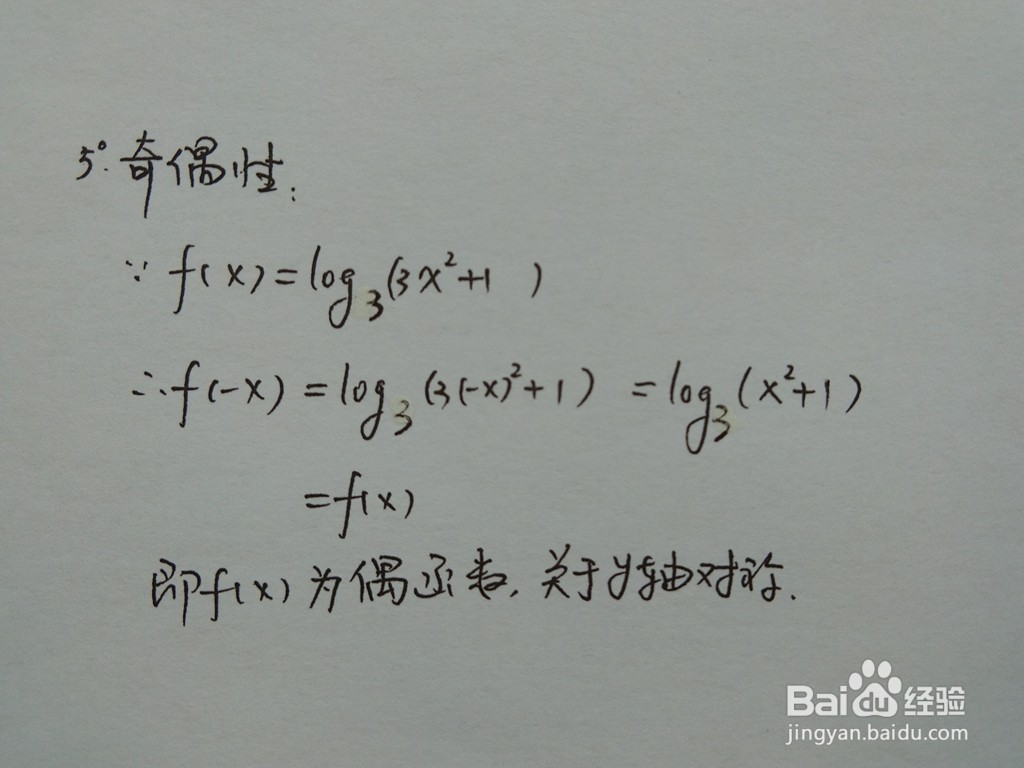 5°.奇偶性:
∵ f(x)=log₃(3x²+1 )
∴f(-x) = log₃(3(-x)²+1) = log₃(x²+1)
=f(x)
即f(x)为偶函数,关于y轴对称.
Bai du 经验
jingyan.baidu.com